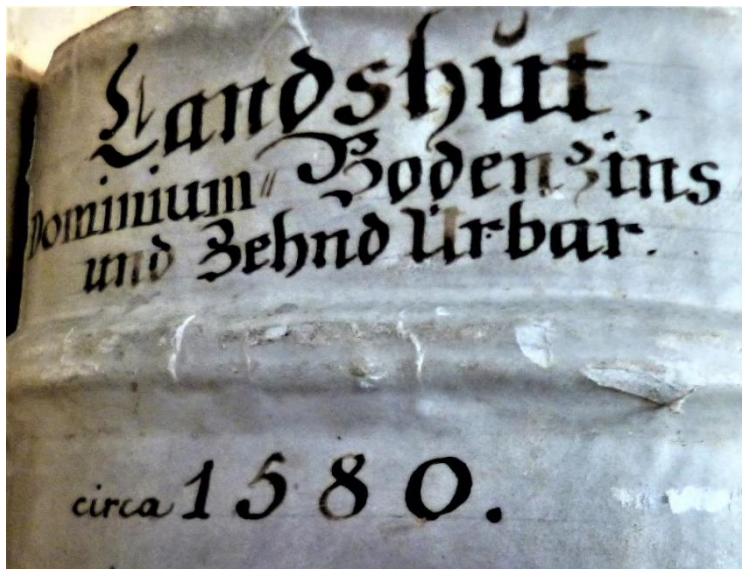 Landshŭt.
Dominium„ Bodenzins
und Zehnd Urbar.
circa 1580.